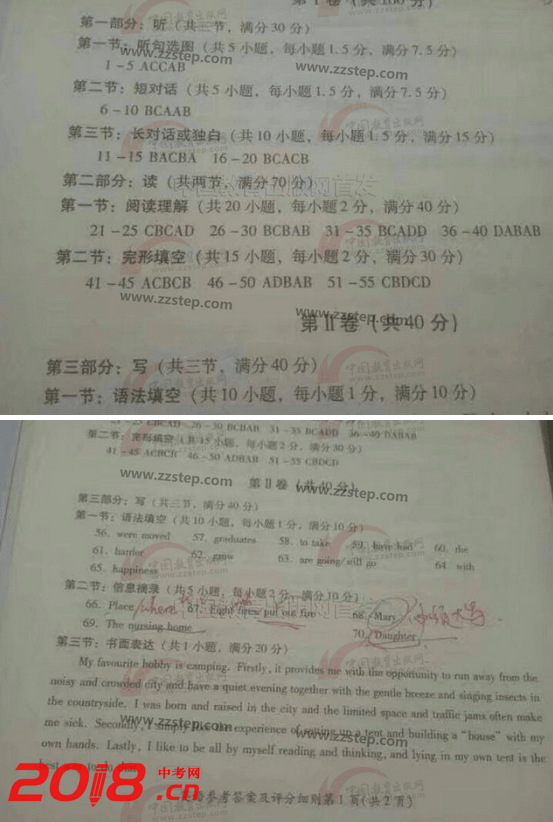 第 I 卷（共100分）
第一部分：听（共三节，满分30分）
第一节：听句选图（共5小题，每小题1.5分，满分7.5分）
1-5 ACCAB
www.zzstep.com
第二节：短对话（共5小题，每小题1.5分，满分7.5分）
6-10 BCAAB
www.zzstep.com
第三节：长对话或独白（共10小题，每小题1.5分，满分15分）
11-15 BACBA 16-20 BCACB
第二部分：读（共两节，满分70分）
第一节：阅读理解（共20小题，每小题2分，满分40分）
21-25 CBCAD 26-30 BCBAB 31-35 BCADD 36-40 DABAB
第二节：完形填空（共15小题，每小题2分，满分30分）
41-45 ACBCB 46-50 ADBAB 51-55 CBDCD
www.zzstep.com
第 II 卷（共40分）
中国教育出版网
第三部分：写（共三节，满分40分）
第一节：语法填空（共10小题，每小题1分，满分10分）
21-25 CBCAD 26-30 BCBAB 31-35 BCADD 36-40 DABAB
第二节：完形填空（共15小题，每小题2分，满分30分）
41-45 ACBCB 46-50 ADBAB 51-55 CBDCD
www.zzstep.com
第 II 卷（共40分）
第三部分：写（共三节，满分40分）
第一节：语法填空（共10小题，每小题1分，满分10分）
56. were moved 57. graduates 58. to take 59. have had 60. the
61. harder 62. grow 63. are going/still go 64. with
65. happiness
第二节：信息摘录（共5小题，每小题2分，满分10分）
66. Place/where 67. Fight fires/put out fire 68. Mary 必须大写
69. The nursing home 70. Daughter
第三节：书面表达（共1小题，满分20分）
My favourite hobby is camping. Firstly, it provides me with the opportunity to run away from the
noisy and crowded city and have a quiet evening together with the gentle breeze and singing insects in
the countryside. I was born and raised in the city and the limited space and traffic jams often make
me sick. Secondly, I simply like the experience of setting up a tent and building a "house" with my
own hands. Lastly, I like to be all by myself reading and thinking, and lying in my own tent is the
best way to do that.
www.zzstep.com
2018中考网.cn
英语参考答案及评分细则第1页（共2页）